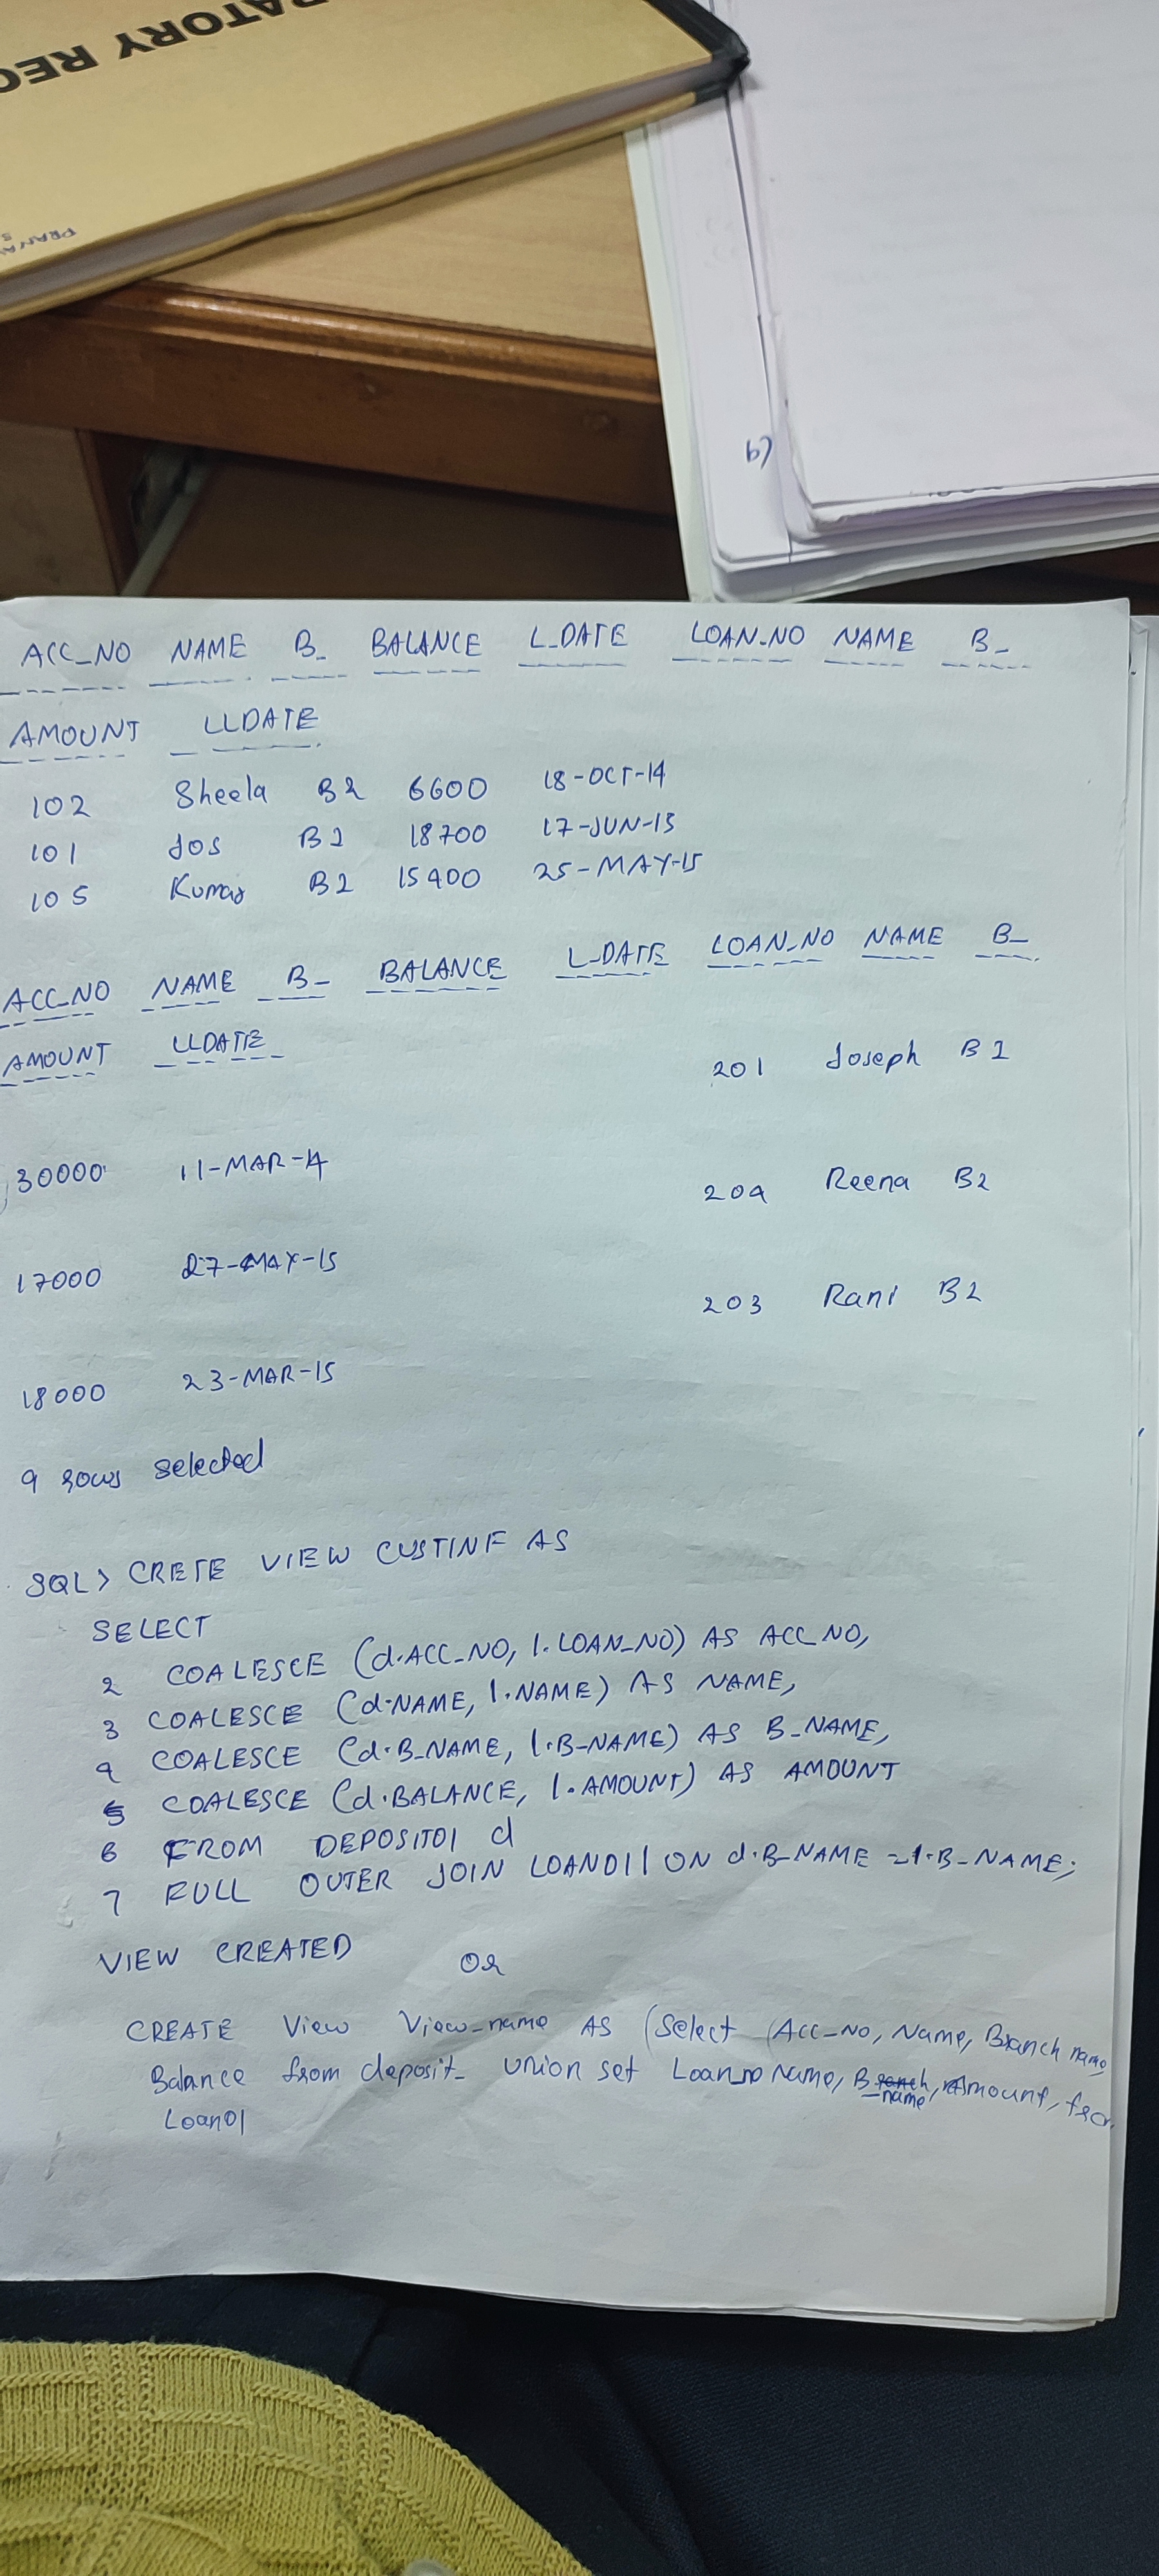 RATORY REC
PRANA
S
b)
ACC_NO NAME B_ BALANCE L_DATE LOAN_NO NAME B_
AMOUNT LLDATE
102 Sheela B2 6600 18-OCT-14
101 Jos B1 18700 17-JUN-13
105 Kumar B2 15400 25-MAY-15
ACC_NO NAME B_ BALANCE L_DATE LOAN_NO NAME B_
AMOUNT LLDATE
201 Joseph B1
30000 11-MAR-14
204 Reena B2
17000 27-MAY-15
203 Rani B2
18000 23-MAR-15
9 rows selected
SQL> CRETE VIEW CUSTINF AS
SELECT
2 COALESCE (d.ACC_NO, l.LOAN_NO) AS ACC_NO,
3 COALESCE (d.NAME, l.NAME) AS NAME,
4 COALESCE (d.B_NAME, l.B_NAME) AS B_NAME,
5 COALESCE (d.BALANCE, l.AMOUNT) AS AMOUNT
6 FROM DEPOSIT01 d
7 FULL OUTER JOIN LOAN01 l ON d.B_NAME = l.B_NAME;
VIEW CREATED
Or
CREATE View View_name AS (Select (Acc_No, Name, Branch name
Balance from deposit_ union set Loan_no Name, B_name, Amount,
Loan01